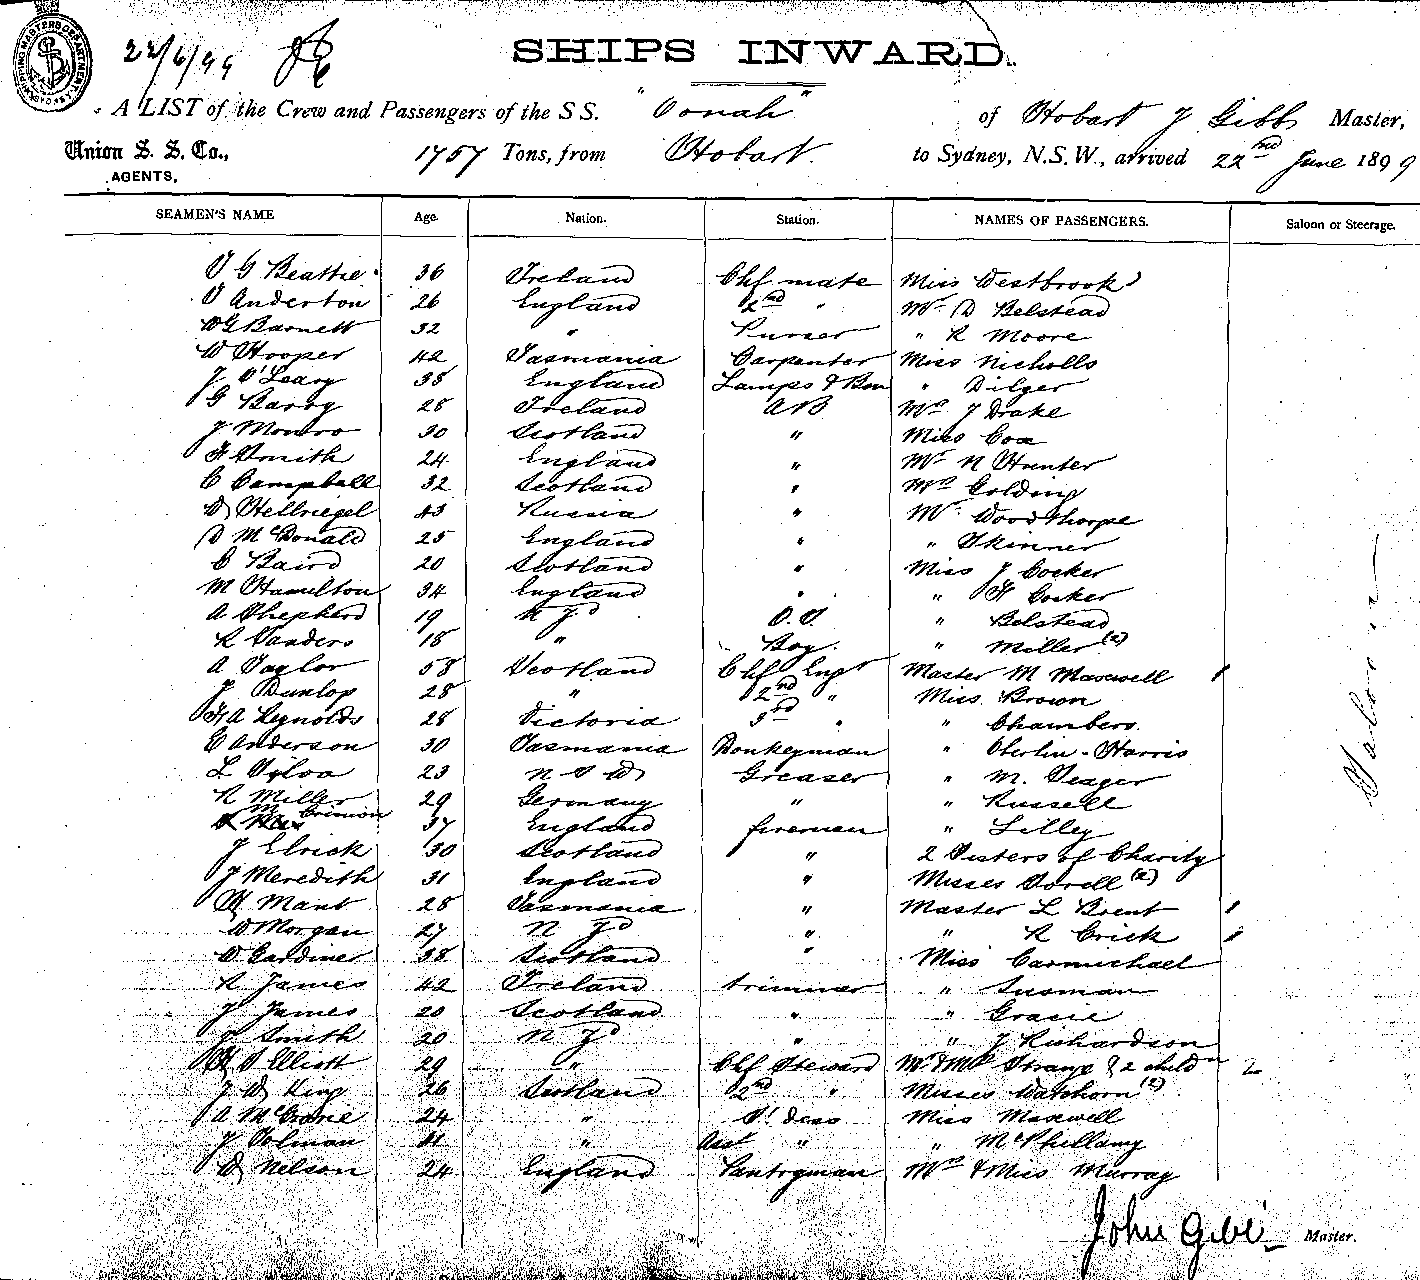 SHIPPING MASTERS DEPARTMENT SYDNEY
22/6/99
SHIPS INWARD.
A LIST of the Crew and Passengers of the S S. "Oonah" of Hobart J Gibb Master,
Union S. S. Co., 1757 Tons, from Hobart. to Sydney, N.S.W., arrived 22nd June 1899
AGENTS,
SEAMEN'S NAME Age. Nation. Station. NAMES OF PASSENGERS. Saloon or Steerage.
J G Beattie 36 Ireland Chf mate Miss Westbrook
J Anderton 26 England 2nd " Mr D Belstead
W G Barnett 32 " Purser " R Moore
W Hooper 42 Tasmania Carpenter Miss Nicholls
J O'Leary 38 England Lamps & Bsn " Dilger
G Barry 28 Ireland AB Mrs J Drake
J Monro 30 Scotland " Miss Cox
F Smith 24 England " Mr N Hunter
C Campbell 32 Scotland " Mrs Golding
W Hellriegel 43 Russia " Mr Woodthorpe
D McDonald 25 England " " Skinner
C Baird 20 Scotland " Miss J Cocker
M Hamilton 34 England " " F Cocker
A Shepherd 19 N Zd O.S. " Belstead
R Sanders 18 " Boy. " Miller (2)
A Taylor 58 Scotland Chf Engr Master M Maxwell 1
J Dunlop 28 " 2nd " Miss Brown
F A Reynolds 28 Victoria 3rd " " Chambers
E Anderson 30 Tasmania Donkeyman " Oberlin-Harris
L Sylva 23 N S W Greaser " M. Seager
R Miller 29 Germany " " Russell
McCrimion 37 England fireman " Lilley
J Elrick 30 Scotland " 2 Sisters of Charity
J Meredith 31 England " Misses Sorell (2)
H Mant 28 Tasmania " Master L Brent 1
W Morgan 27 N Zd " " R Crick 1
W Gardiner 38 Scotland " Miss Carmichael
R James 42 Ireland trimmer " Susman
J James 20 Scotland " " Gracie
J Smith 20 N Zd " " J Richardson
H S Elliott 29 " Chf Steward Mr & Mrs Strange & 2 childn 2
J W King 26 Scotland 2nd " Misses Watchorn (2)
A McCrorie 24 " S'dess Miss Maxwell
J Tolman 41 " Asst " " McPhillamy
W Nelson 24 England Pantryman Mrs & Miss Murray
Saloon
John Gibb Master.